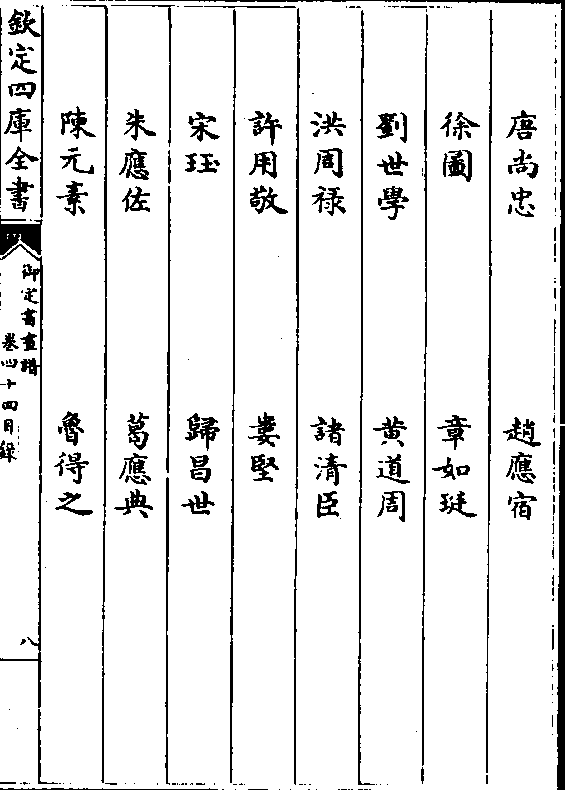 唐尚忠　趙應宿
徐圖　章如珽
劉世學　黄道周
洪周禄　諸清臣
許用敬　婁堅
宋珏　歸昌世
朱應佐　葛應典
陳元素　魯得之
欽定四庫全書　御定書畫譜　卷四十四目録　八